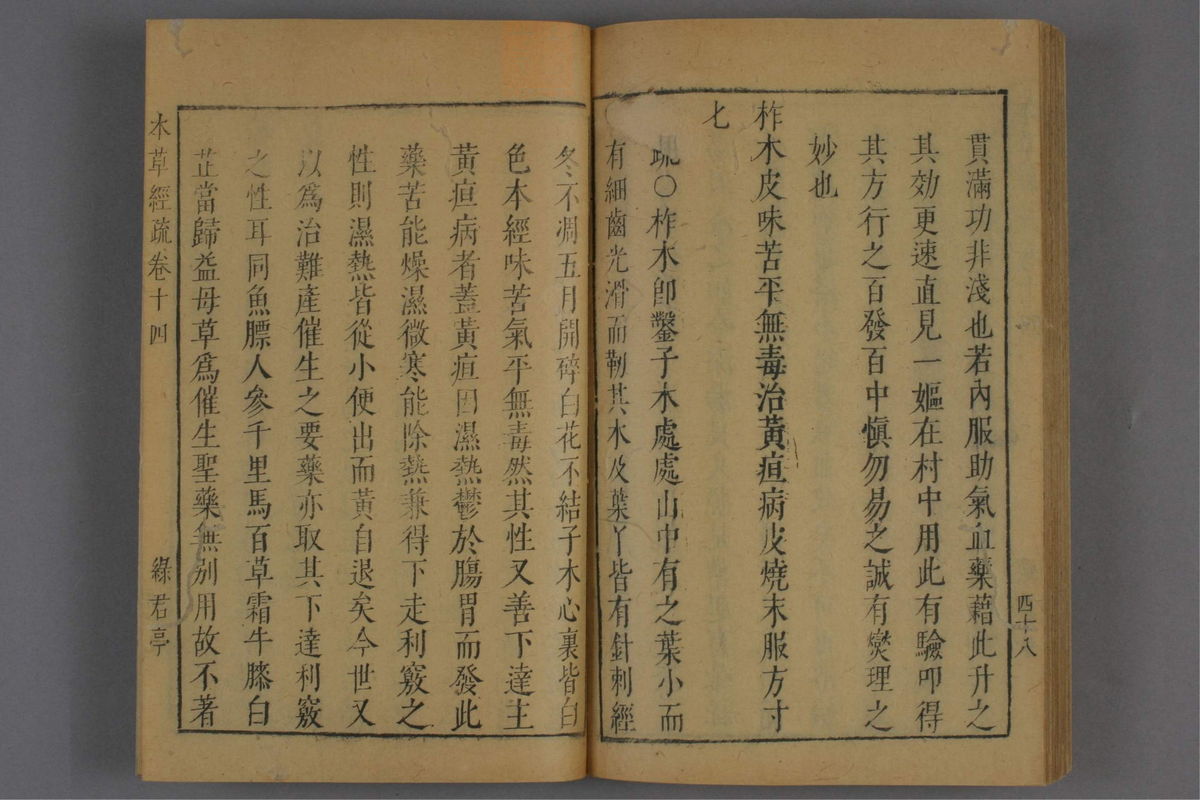 貫滿功非淺也若內服助氣血藥藉此升之
其効更速直見一嫗在村中用此有驗叩得
其方行之百發百中愼勿易之誠有爕理之
妙也
柞木皮味苦平無毒治黃疸病皮燒末服方寸
匕
疏○柞木卽鑿子木處處山中有之葉小而
有細齒光滑而韌其木及葉丫皆有針刺經
四十八
冬不凋五月開碎白花不結子木心裏皆白
色本經味苦氣平無毒然其性又善下達主
黃疸病者蓋黃疸因濕熱鬱於腸胃而發此
藥苦能燥濕微寒能除熱兼得下走利竅之
性則濕熱皆從小便出而黃自退矣今世又
以爲治難產催生之要藥亦取其下達利竅
之性耳同魚膘人參千里馬百草霜牛膝白
芷當歸益母草爲催生聖藥無別用故不著
本草經疏卷十四
綠君亭